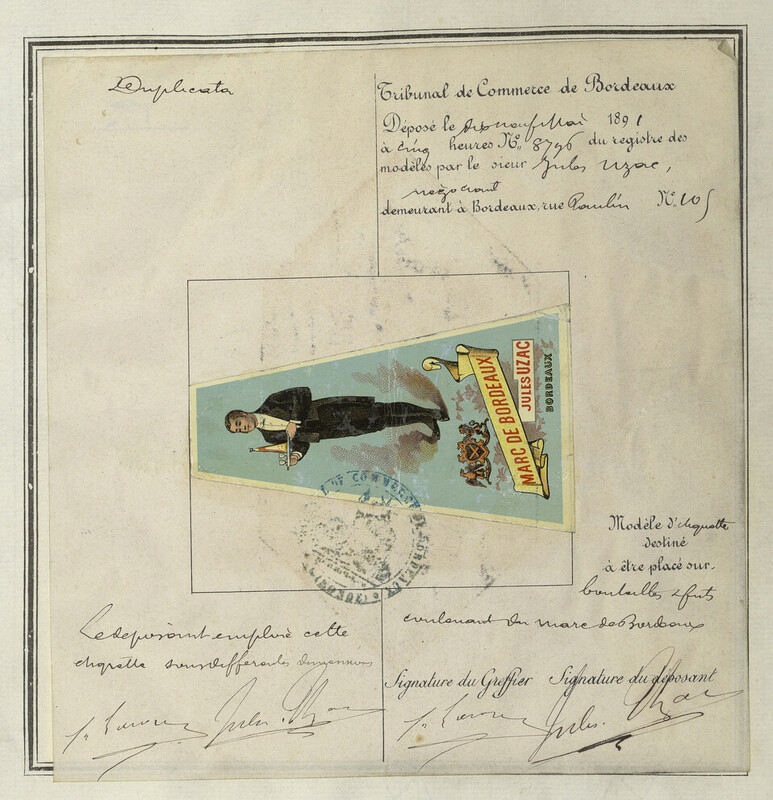 Duplicata
Tribunal de Commerce de Bordeaux
Déposé le dix neuf Mai 1891
à cinq heures No. 8796 du registre des
modèles par le sieur Jules Uzac,
négociant
demeurant à Bordeaux, rue Paulin No. 105
MARC DE BORDEAUX
JULES UZAC
BORDEAUX
DE COMMERCE DE BORDEAUX
Modèle d'étiquette
destiné
à être placé sur
bouteilles & futs
contenant du marc de Bordeaux
Le déposant emploie cette
étiquette sous différentes dimensions
Signature du Greffier Signature du déposant
Jules Uzac
Jules Uzac